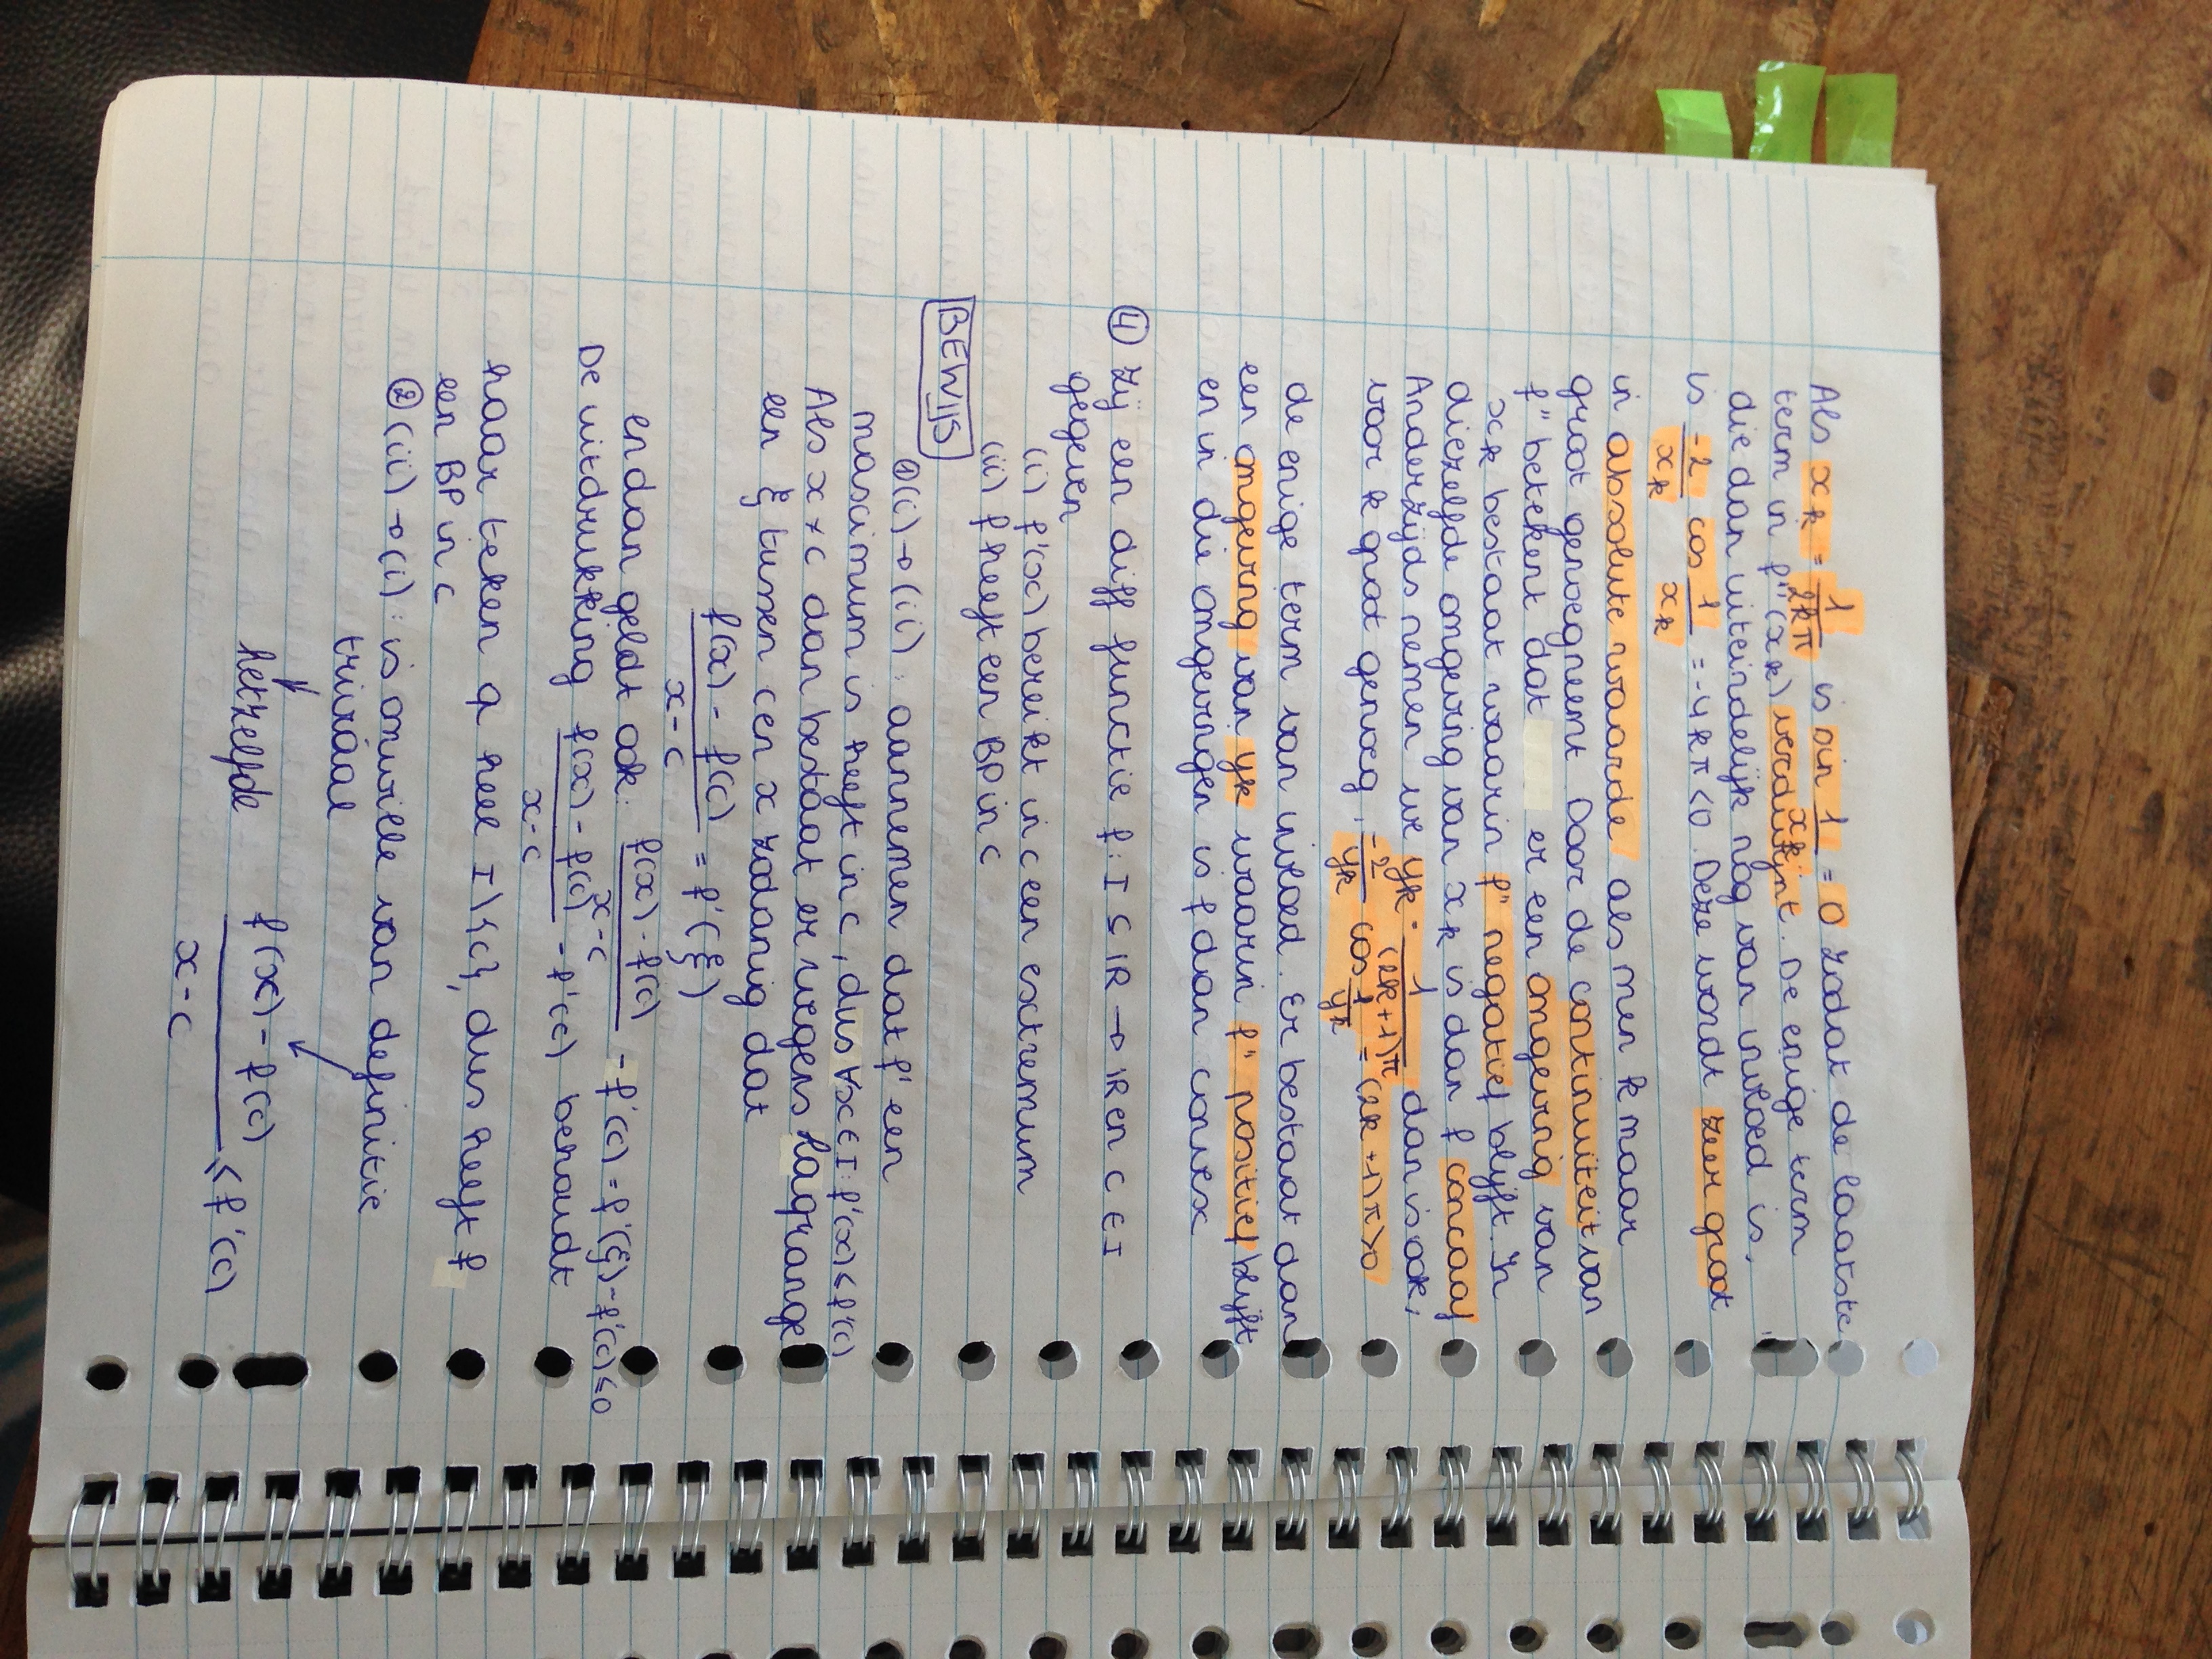 Als xₖ = 1/(2kπ) is sin 1/xₖ = 0 zodat de laatste
term in f''(xₖ) verdwijnt. De enige term
die dan uiteindelijk nog van invloed is,
is -2/xₖ cos 1/xₖ = -4kπ < 0. Deze wordt zeer groot
in absolute waarde als men k maar
groot genoeg neemt Door de continuiteit van
f'' betekent dat er een omgeving van
xₖ bestaat waarin f'' negatief blijft. In
diezelfde omgeving van xₖ is dan f concaaf
Anderzijds nemen we yₖ = 1/((2k+1)π) dan is ook,
voor k groot genoeg, -2/yₖ cos 1/yₖ = (2k+1)π > 0
de enige term van invloed. Er bestaat dan
een omgeving van yₖ waarin f'' positief blijft
en in die omgevingen is f dan convex
④ Zij een diff functie f: I ⊆ ℝ → ℝ en c ∈ I
gegeven
(i) f'(x) bereikt in c een extremum
(ii) f heeft een BP in c
BEWIJS
①(i) → (ii): aannemen dat f' een
maximum is heeft in c, dus ∀x ∈ I: f'(x) ≤ f'(c)
Als x ≠ c dan bestaat er wegens Lagrange
een ξ tussen c en x zodanig dat
(f(x) - f(c))/(x-c) = f'(ξ)
en dan geldt ook: (f(x) - f(c))/(x-c) - f'(c) = f'(ξ) - f'(c) ≤ 0
De uitdrukking (f(x) - f(c))/(x-c) - f'(c) behoudt
haar teken a heel I\{c}, dus heeft f
een BP in c
②(ii) → (i): is omwille van definitie
triviaal
↓ hetzelfde
(f(x) - f(c))/(x-c) ≤ f'(c)